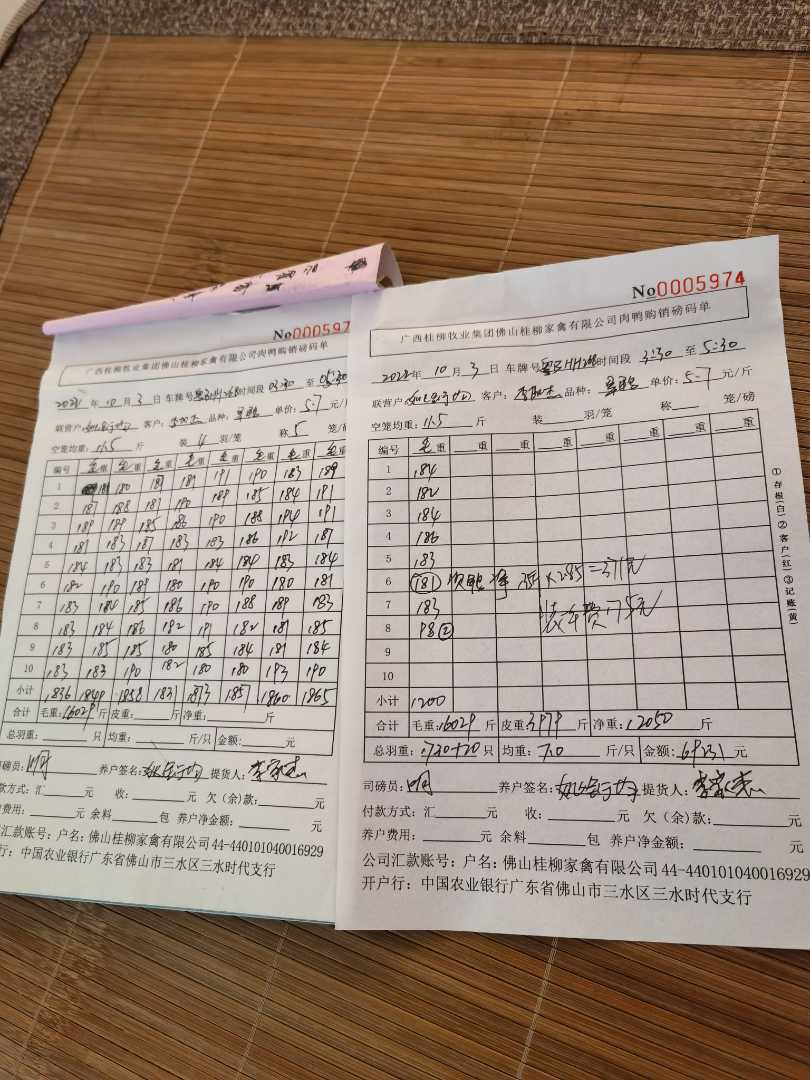 No 000597
广西桂柳牧业集团佛山桂柳家禽有限公司肉鸭购销磅码单
年 10 月 3 日 车牌号 时间段 03:30 至 05:30
联营户: 客户: 品种: 单价: 5.7 元/
空笼均重: 11.5 斤 装 4 羽/笼 称 5 笼/
编号 毛重 毛重 毛重 毛重 毛重 毛重 毛重 毛重
1 180 191 190 183 189
2 187 188 187 190 189 185 184 191
3 189 189 185 190 188 194 191
4 187 183 187 183 183 186 192 187
5 184 183 183 187 184 184 183 184
6 182 190 189 180 190 190 180 181
7 183 184 185 186 190 188 189 183
8 183 184 186 182 191 182 187 185
9 183 185 185 180 185 184 187 184
10 183 183 190 182 180 180 193 190
小计 1836 1849 1858 1831 1873 1857 1860 1865
合计 毛重: 16029 斤 皮重: 斤 净重: 斤
总羽重: 只 均重: 斤/只 金额: 元
司磅员: 明 养户签名: 提货人:
付款方式: 汇 元 收: 元 欠(余)款: 元
养户费用: 元 余料 包 养户净金额: 元
汇款账号: 户名: 佛山桂柳家禽有限公司 44-440101040016929
行: 中国农业银行广东省佛山市三水区三水时代支行
No 0005974
广西桂柳牧业集团佛山桂柳家禽有限公司肉鸭购销磅码单
年 10 月 3 日 车牌号 时间段 3:30 至 5:30
联营户: 客户: 品种: 单价: 5.7 元/斤
空笼均重: 11.5 斤 装 羽/笼 称 笼/磅
编号 毛重 重 重 重 重 重 重 重
1 184
2 182
3 184
4 186
5 183
6 181 次鸭净 ×2.85=371元
7 183 装车费175元
8 98 ②
9
10
小计 1200
合计 毛重: 16029 斤 皮重: 3979 斤 净重: 12050 斤
总羽重: 1720+20 只 均重: 7.0 斤/只 金额: 69231 元
司磅员: 明 养户签名: 提货人:
付款方式: 汇 元 收: 元 欠(余)款: 元
养户费用: 元 余料 包 养户净金额: 元
公司汇款账号: 户名: 佛山桂柳家禽有限公司 44-440101040016929
开户行: 中国农业银行广东省佛山市三水区三水时代支行
①存根(白)②客户(红)③记账(黄)